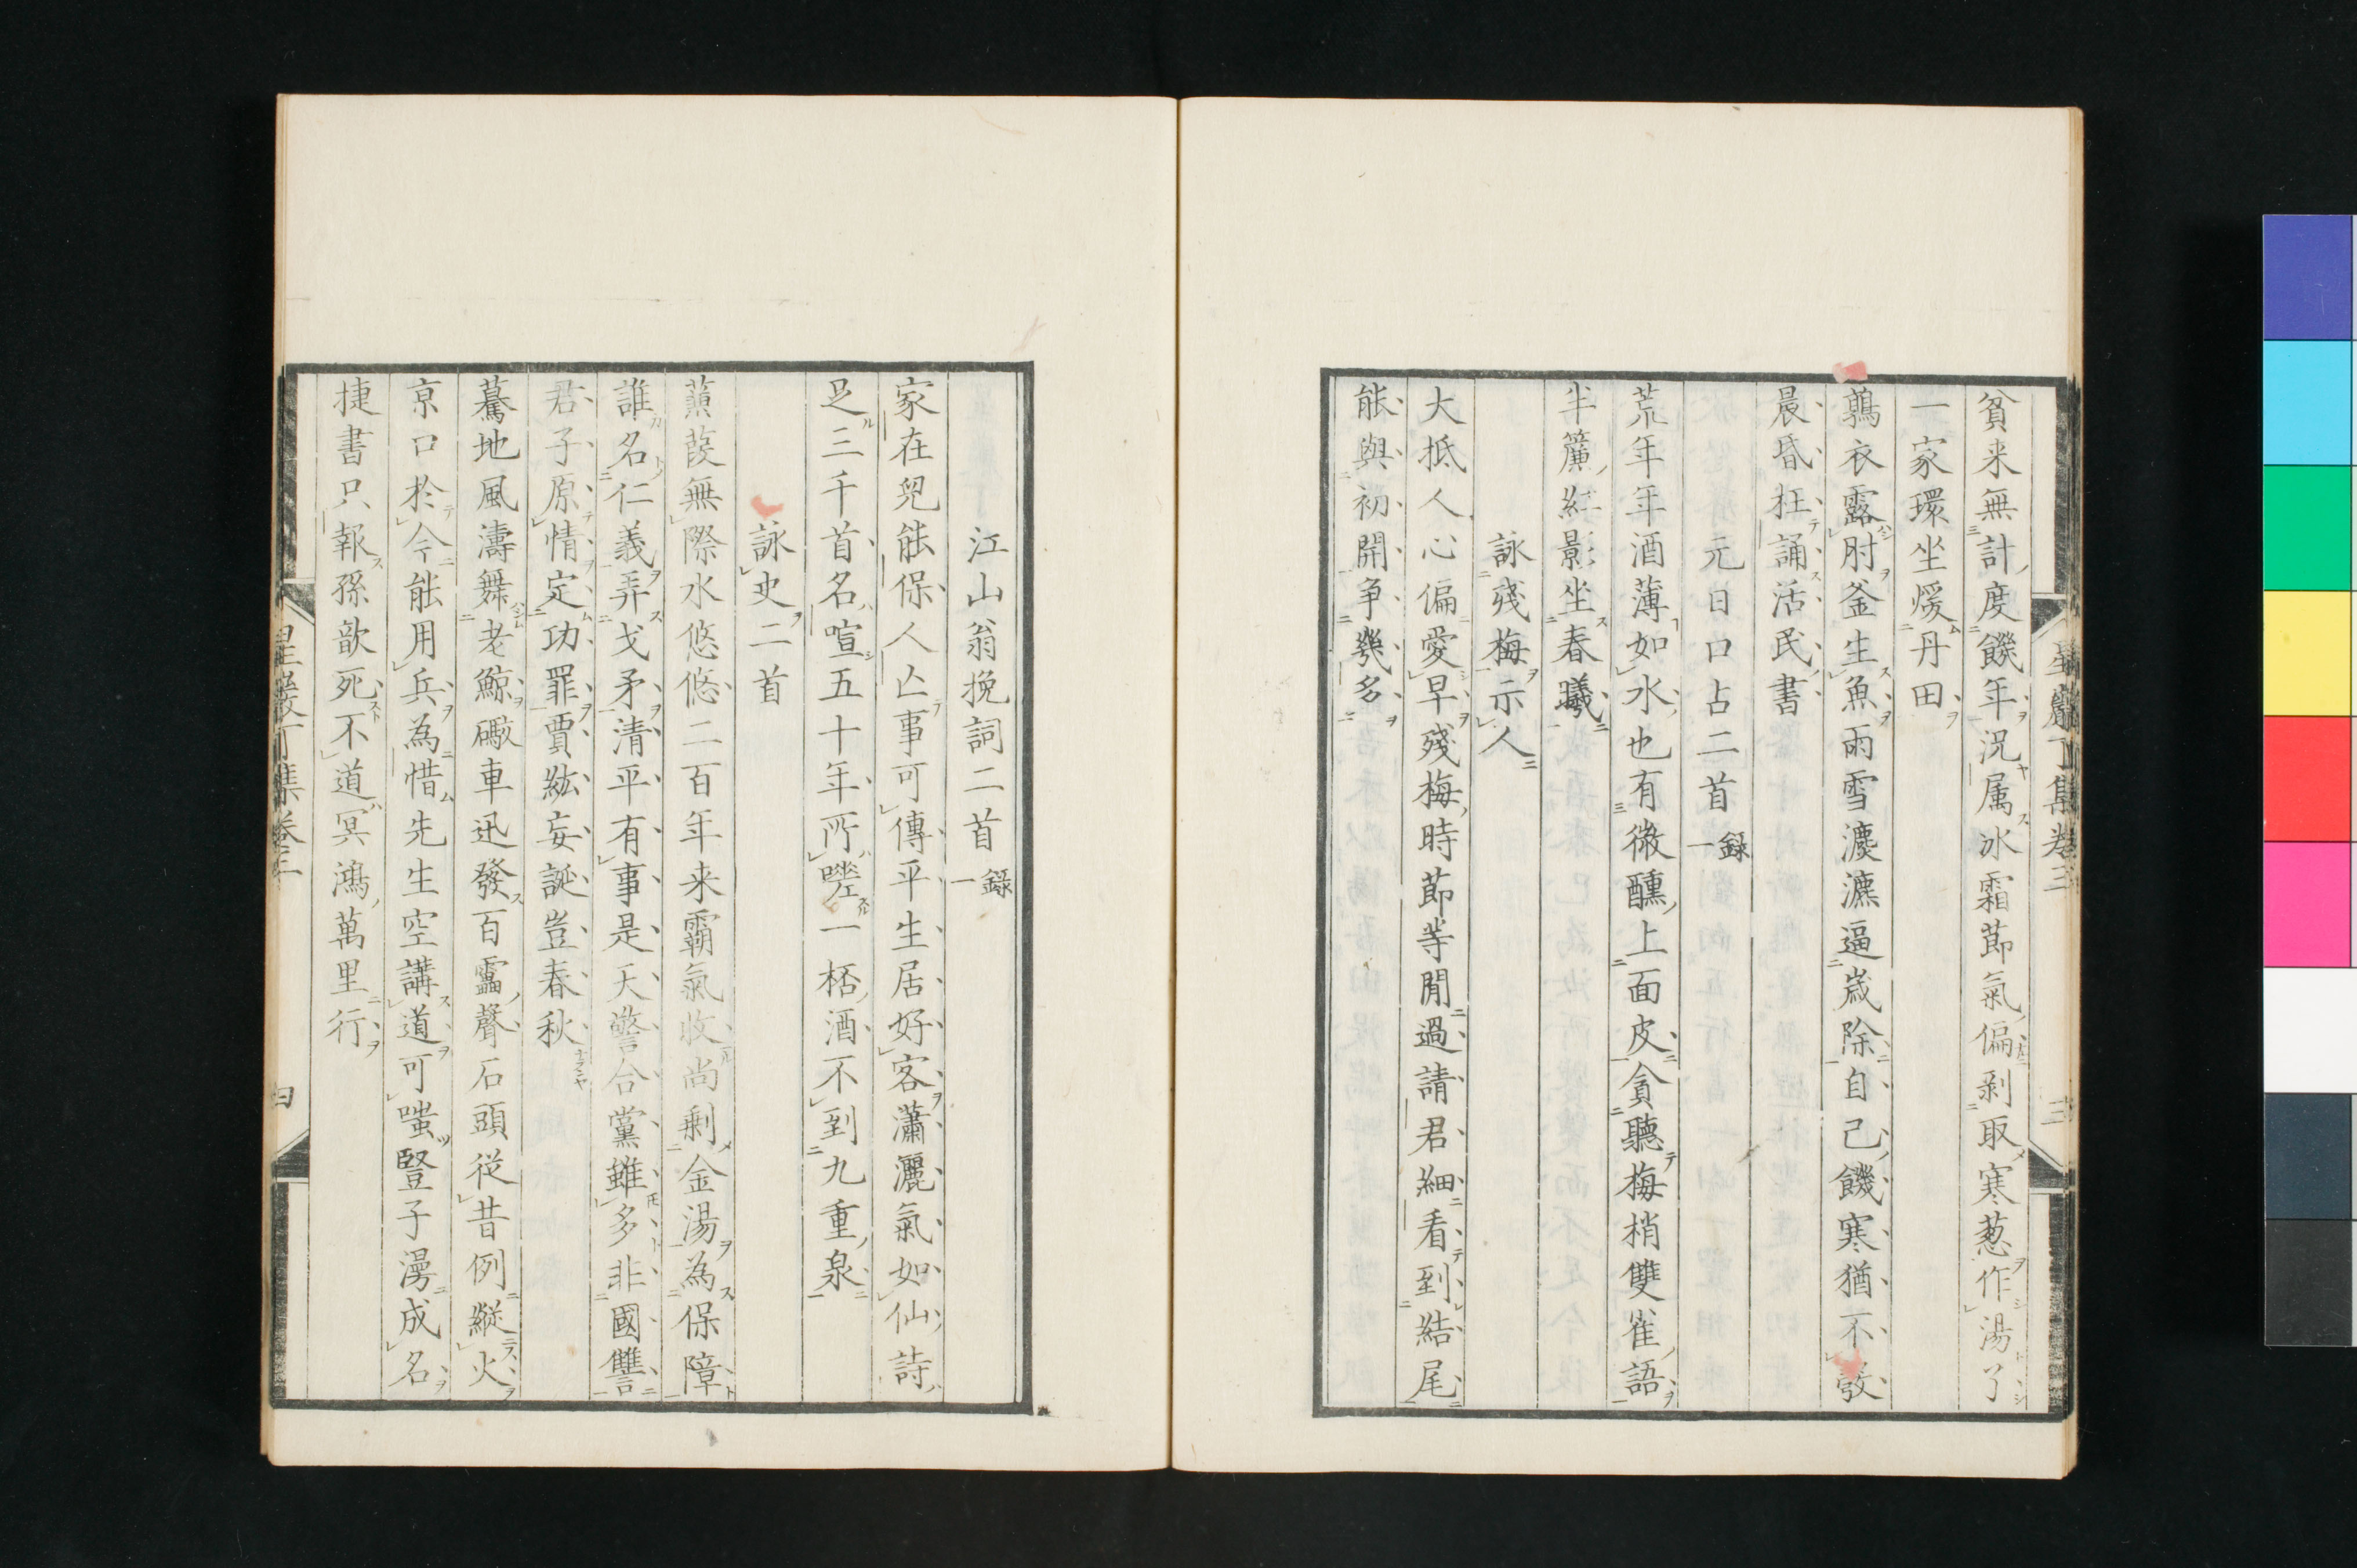 星巖丁集卷三
三
貧来無計度饑年況属冰霜節氣偏剥取寒葱作湯了
一家環坐煖丹田
鶉衣露肘釜生魚雨雪瀌瀌逼崴除自己饑寒猶不敎
晨昏枉誦活民書
元日口占二首 錄一
荒年年酒薄如水也有微醺上面皮貪聽梅梢雙雀語
半簾紅影坐春曦
詠殘梅示人
大抵人心偏愛早殘梅時節等閒過請君細看到結尾
能與初開争幾多
江山翁挽詞二首 錄一
家在兒能保人亡事可傳平生居好客瀟灑氣如仙詩
足三千首名喧五十年所嗟一桮酒不到九重泉
詠史二首
蒹葭無際水悠悠二百年来霸氣收尚剩金湯為保障
誰名仁義弄戈矛清平有事是天警合黨雖多非國讐
君子原情定功罪賈紘妄誕豈春秋
驀地風濤舞老鯨礮車迅發百靁聲石頭從昔例縱火
京口於今能用兵為惜先生空講道可嗤豎子漫成名
捷書只報孫歆死不道冥鴻萬里行
星巖丁集卷三
四